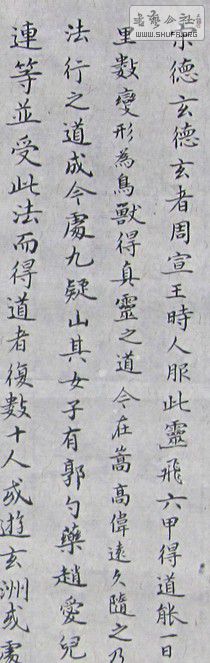 宗德玄德玄者周宣王時人服此靈飛六甲得道能一日
里數變形為鳥獸得真靈之道今在蒿高偉遠久隨之乃
法行之道成今處九疑山其女子有郭勺藥趙愛兒
連等並受此法而得道者復數十人或遊玄洲或處
WWW.SHUFA.ORG